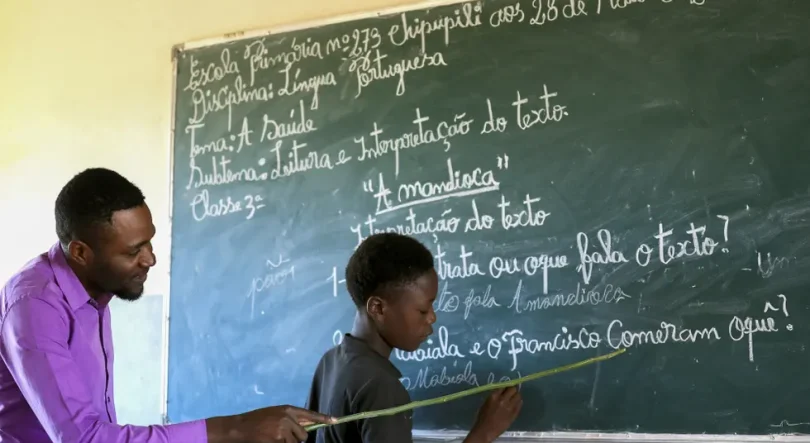 Escola Primária nº 273 Chipupili aos 28 de
Disciplina: Língua Portuguesa
Tema: A Saúde
Subtema: Leitura e Interpretação do texto.
Classe 3ª
"A mandioca"
Interpretação do texto
1- trata ou oque fala o texto?
fala A mandioca
e o Francisco Comeram Oquê?